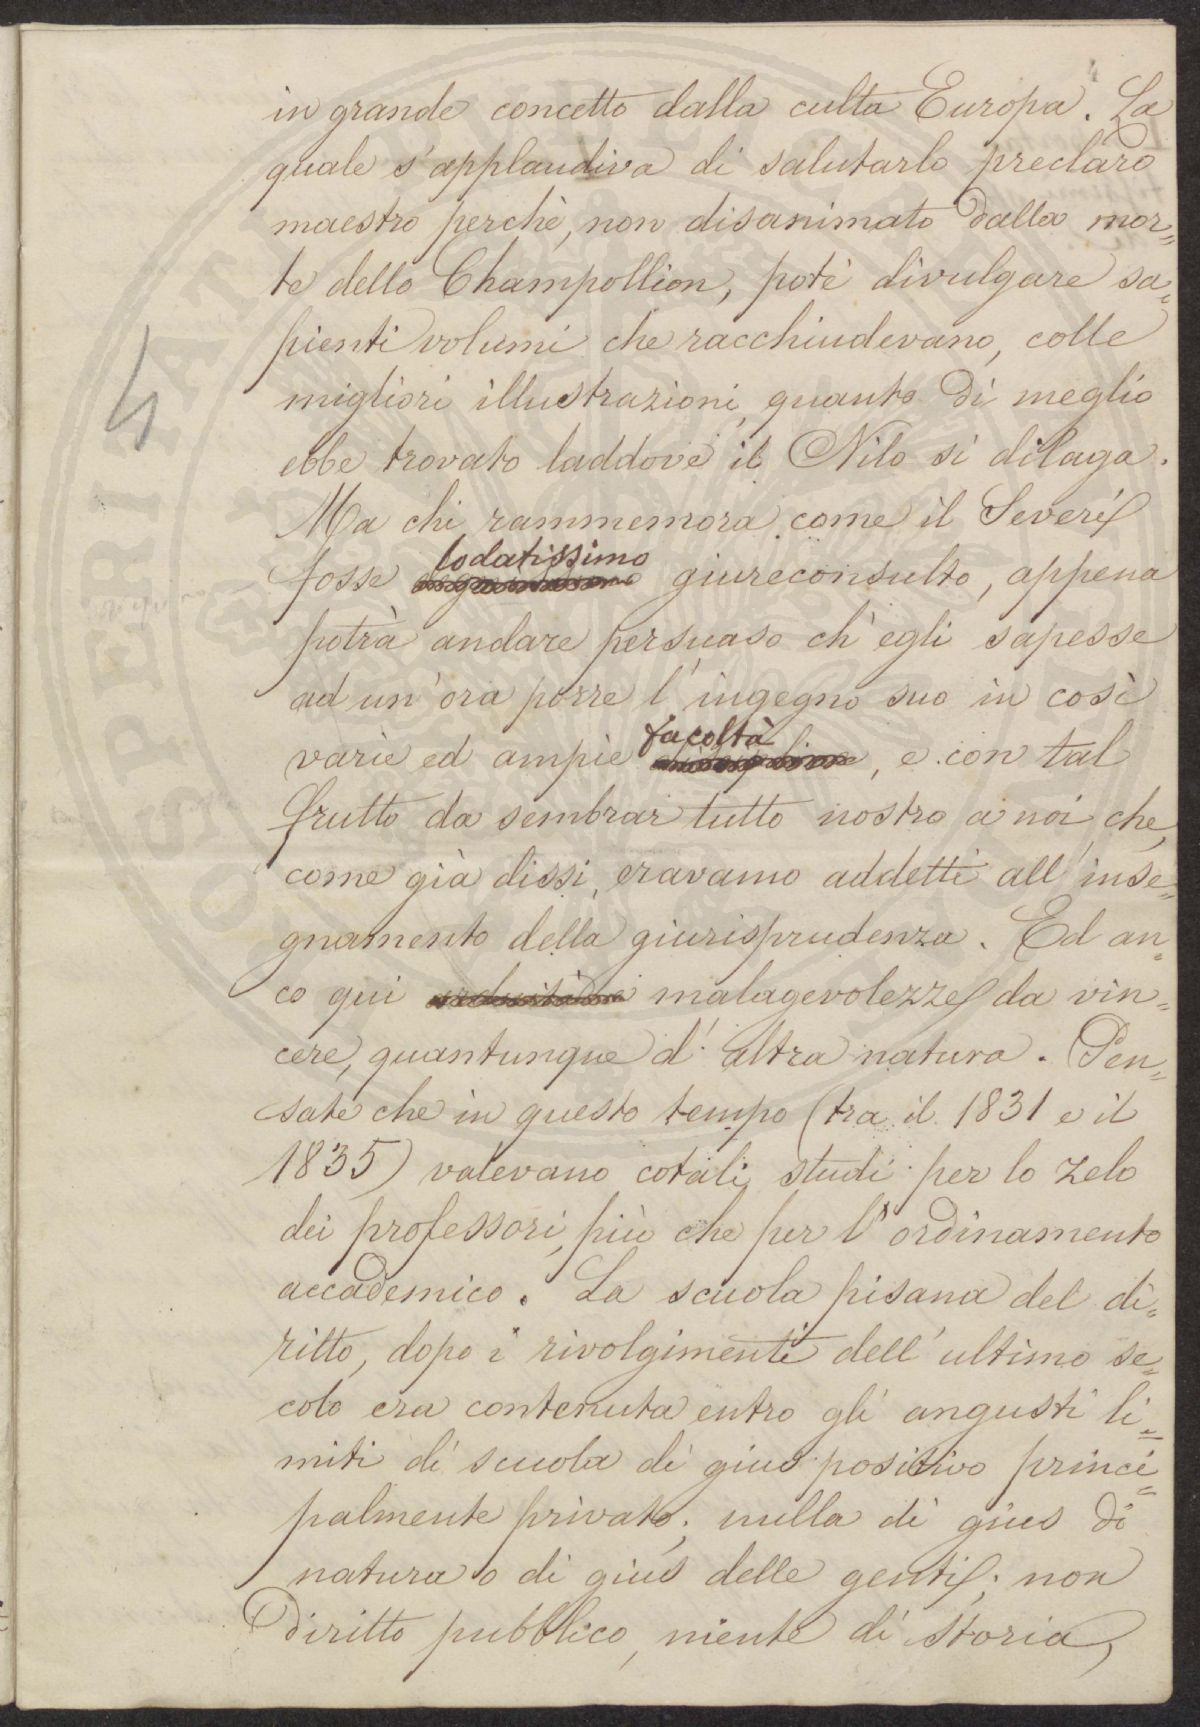 in grande concetto dalla culta Europa. La
quale s'applaudiva di salutarlo preclaro
maestro perchè, non disanimato dalla mor=
te dello Champollion, potè divulgare sa=
pienti volumi che racchiudevano, colle
migliori illustrazioni, quanto di meglio
ebbe trovato laddove il Nilo si dilaga.
Ma chi rammemora come il Severi
lodatissimo
fosse giureconsulto, appena
potrà andare persuaso ch'egli sapesse
ad un'ora porre l'ingegno suo in così
facoltà
varie ed ampie , e con tal
frutto da sembrar tutto nostro a noi, che,
come già dissi, eravamo addetti all'inse=
gnamento della giurisprudenza. Ed an=
co qui malagevolezze da vin=
cere, quantunque d'altra natura. Pen=
sate che in questo tempo (tra il 1831 e il
1835) valevano cotali studi per lo zelo
dei professori, più che per l'ordinamento
accademico. La scuola pisana del di=
ritto, dopo i rivolgimenti dell'ultimo se=
colo era contenuta entro gli angusti li=
miti di scuola di gius positivo princi=
palmente privato; nulla di gius di
natura o di gius delle genti; non
diritto pubblico, niente di storia,